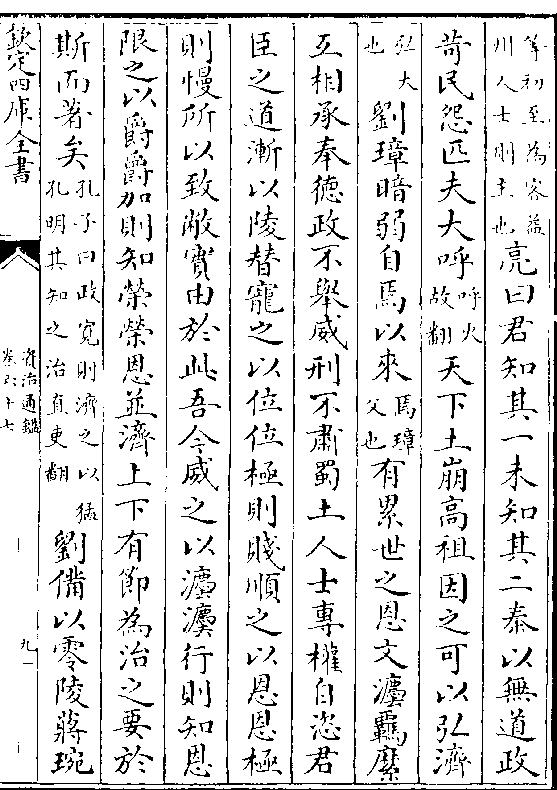 等初至為客益州人士則主也亮曰君知其一未知其二秦以無道政
苛民怨匹夫大呼呼火故翻天下土崩高祖因之可以弘濟
弘大也劉璋暗弱自焉以來焉璋父也有累世之恩文灋羈縻
互相承奉德政不舉威刑不肅蜀土人士專權自恣君
臣之道漸以陵替寵之以位位極則賤順之以恩恩極
則慢所以致敝實由於此吾今威之以灋灋行則知恩
限之以爵爵加則知榮榮恩並濟上下有節為治之要於
斯而著矣孔子曰政寬則濟之以猛孔明其知之治直吏翻劉備以零陵蔣琬
欽定四庫全書
資治通鑑
卷六十七
九